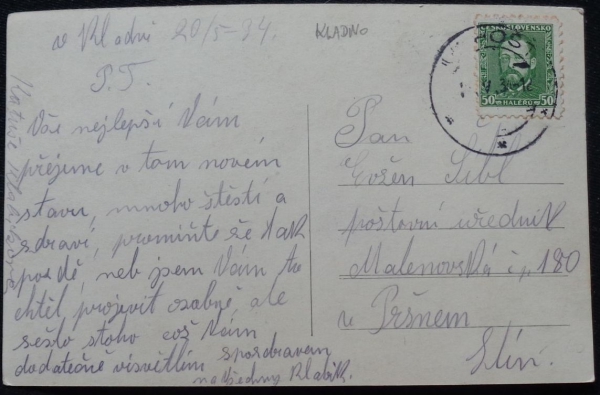 v Kladně 20/5-34.
KLADNO
P.T.
Vše nejlepší Vám
přejeme v tom novém
stavu, mnoho štěstí a
zdraví, promiňte že tak
pozdě, neb jsem Vám to
chtěl projevit osobně ale
sešlo stoho což Vám
dodatečně visvětlím spozdravem
na všechny Klabik.
ČESKOSLOVENSKO
50 HALÉŘŮ 50
Pan
Evžen
poštovní uředník
Malenovská čp. 180
v Pršnem
Zlín.